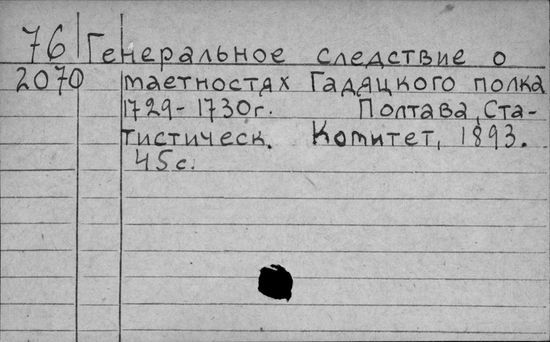 76 Генеральное следствие о
2070 маетностях Гадяцкого полка
1729-1730г. Полтава, Ста-
тистическ. Комитет, 1893.
45с.